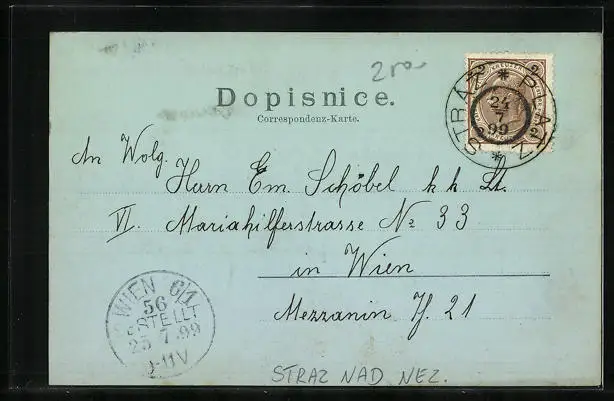 2
Dopisnice.
Correspondenz-Karte.
STRÁŽ * PLATZ *
24
7
99
An Wolg.
Herrn Em. Schöbel k k Lt.
VI. Mariahilferstrasse № 33
in Wien
Mezzanin J. 21
WIEN 6/1
56
BESTELLT
25 7 99
STRAZ NAD NEZ.